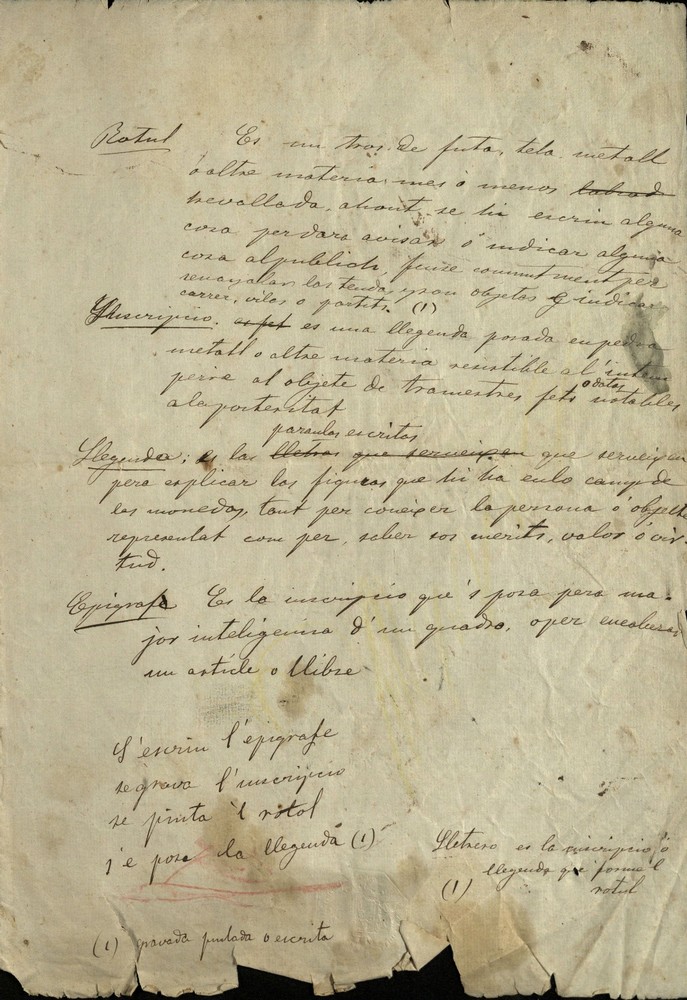 Rotul Es un tros de fusta, tela, metall
ó altre materia mes ó menos labrad
trevallada, ahont se hi escriu alguna
cosa per dara avisar ó indicar alguna
cosa al publich, comunment per
senyalar las tendas, y son objetas q indican
carrer, vilas o partits. (1)
Inscripcio. es una llegenda posada en pedra
metall o altre materia resistible al intem
perie al objete de trametres fets notables
o datos
a la posteritat
paraulas escritas
Llegenda; es las lletras que serveixen que serveixen
pera esplicar las figuras que hi ha en lo camp de
las monedas, tant per coneixer la persona ó objecte
representat com per, saber sos merits, valor ó vir-
tud.
Epigrafe Es la inscripcio que's posa pera ma-
jor inteligencia d'un quadro, o per encabesar
un article o llibre
S'escriu l'epigrafe
se grava l'inscripcio
se pinta 'l rotol
s'e posa la llegenda (1)
Lletrero es la inscripcio ó
llegenda que forma 'l
(1) rotul
(1) gravada pintada o escrita